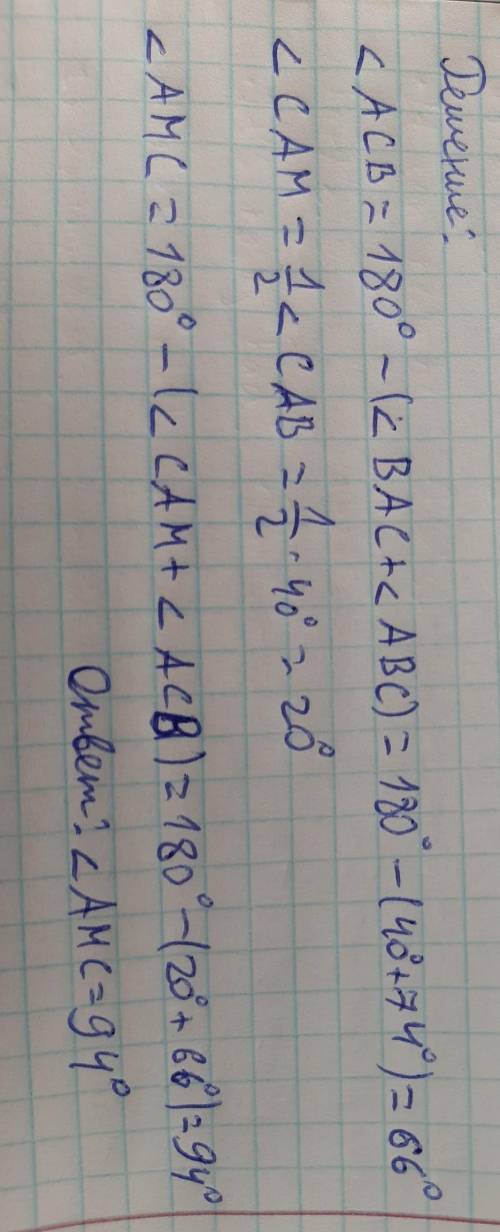 Решение:
< ACB = 180° - (< BAC + < ABC) = 180° - (40° + 74°) = 66°
< CAM = 1/2 < CAB = 1/2 · 40° = 20°
< AMC = 180° - (< CAM + < ACB) = 180° - (20° + 66°) = 94°
Ответ: < AMC = 94°